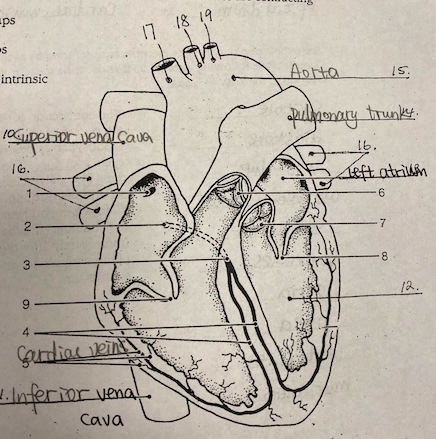 ups
os
intrinsic
17 18 19
Aorta 15.
10. Superior vena Cava
pulmonary trunk.
16.
16.
left atrium
1
6
2
7
3
8
9
12.
4
Cardiac veins
5
Inferior vena
Cava